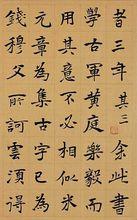 其三 余此書
學右軍黃庭樂毅而
用其意不必相似米
元章為集古字已為
錢穆父所訶雲須得